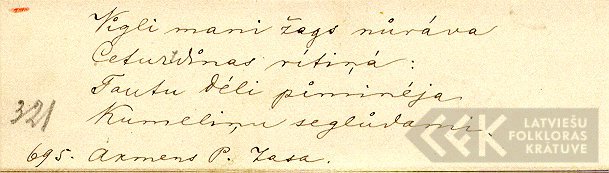 Vigli mani žags nůráva
Ceturdůnas rítiņá:
Tautu déli půminéja,
Kumeliņu seglůdami.
321
695. Akmens P. Zasa.
LATVIEŠU
FOLKLORAS
KRĀTUVE